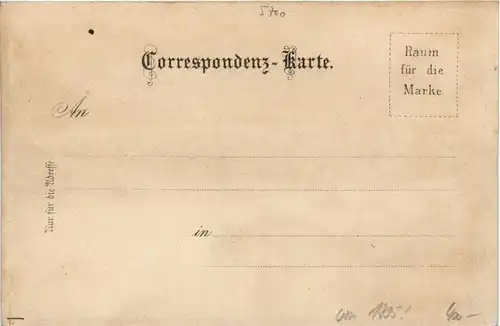 5700
Correspondenz-Karte.
Raum
für die
Marke
An
Nur für die Adresse
in
1895!